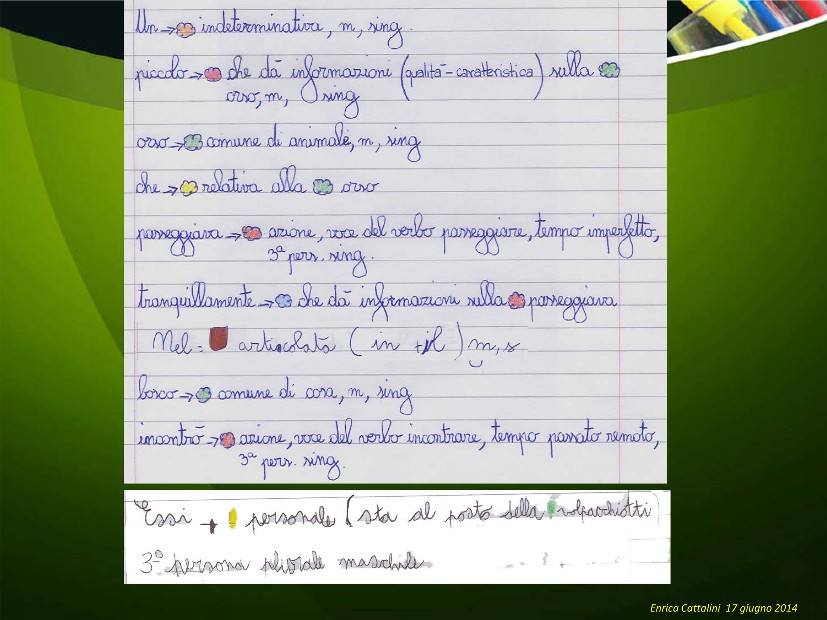 Un → indeterminativa, m, sing.
piccolo → che dà informazioni (qualità - caratteristica) sulla
orso, m, sing
orso → comune di animale, m, sing
che → relativa alla orso
passeggiava → azione, voce del verbo passeggiare, tempo imperfetto,
3ª pers. sing.
tranquillamente → che dà informazioni sulla passeggiava
Nel = articolata (in + il) m, s
bosco → comune di cosa, m, sing
incontrò → azione, voce del verbo incontrare, tempo passato remoto,
3ª pers. sing.
Essi → personale (sta al posto della volpacchiotti
3ª persona plurale maschile
Enrica Cattalini 17 giugno 2014